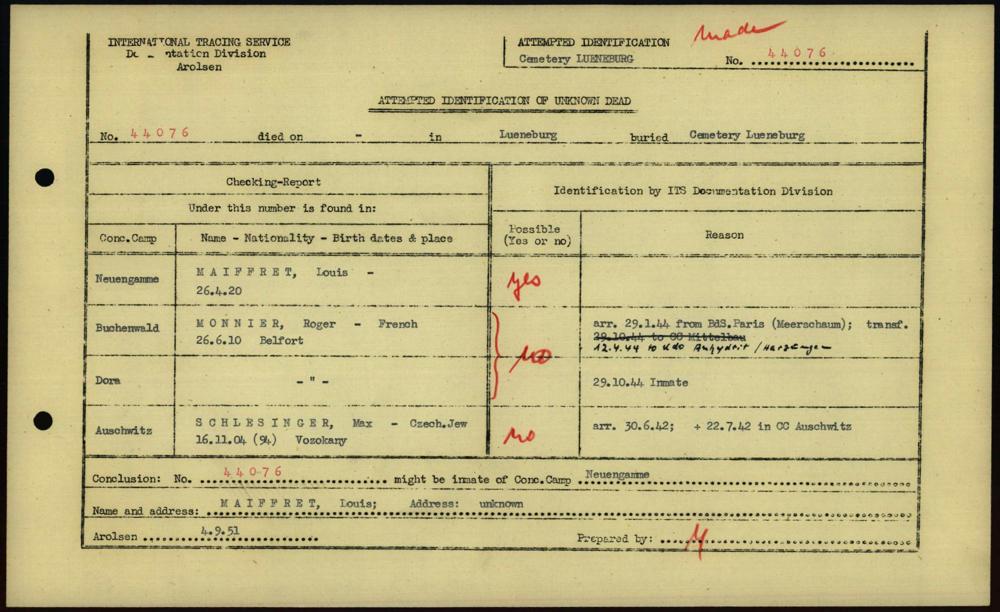 made
INTERNATIONAL TRACING SERVICE
Documentation Division
Arolsen
ATTEMPTED IDENTIFICATION
Cemetery LUENEBURG
No. 44076
ATTEMPTED IDENTIFICATION OF UNKNOWN DEAD
No. 44076 died on - in Lueneburg buried Cemetery Lueneburg
Checking-Report
Under this number is found in:
Identification by ITS Documentation Division
Conc.Camp
Name - Nationality - Birth dates & place
Possible
(Yes or no)
Reason
Neuengamme
MAIFFRET, Louis -
26.4.20
yes
Buchenwald
MONNIER, Roger - French
26.6.10 Belfort
no
arr. 29.1.44 from BdS.Paris (Meerschaum); transf.
29.10.44 to CC Mittelbau
12.4.44 to Kdo Anhydrit / Harzungen
Dora
- " -
29.10.44 Inmate
Auschwitz
SCHLESINGER, Max - Czech.Jew
16.11.04 (94) Vozokany
no
arr. 30.6.42; + 22.7.42 in CC Auschwitz
Conclusion: No. 44076 might be inmate of Conc.Camp Neuengamme
Name and address: MAIFFRET, Louis; Address: unknown
Arolsen 4.9.51
Prepared by: